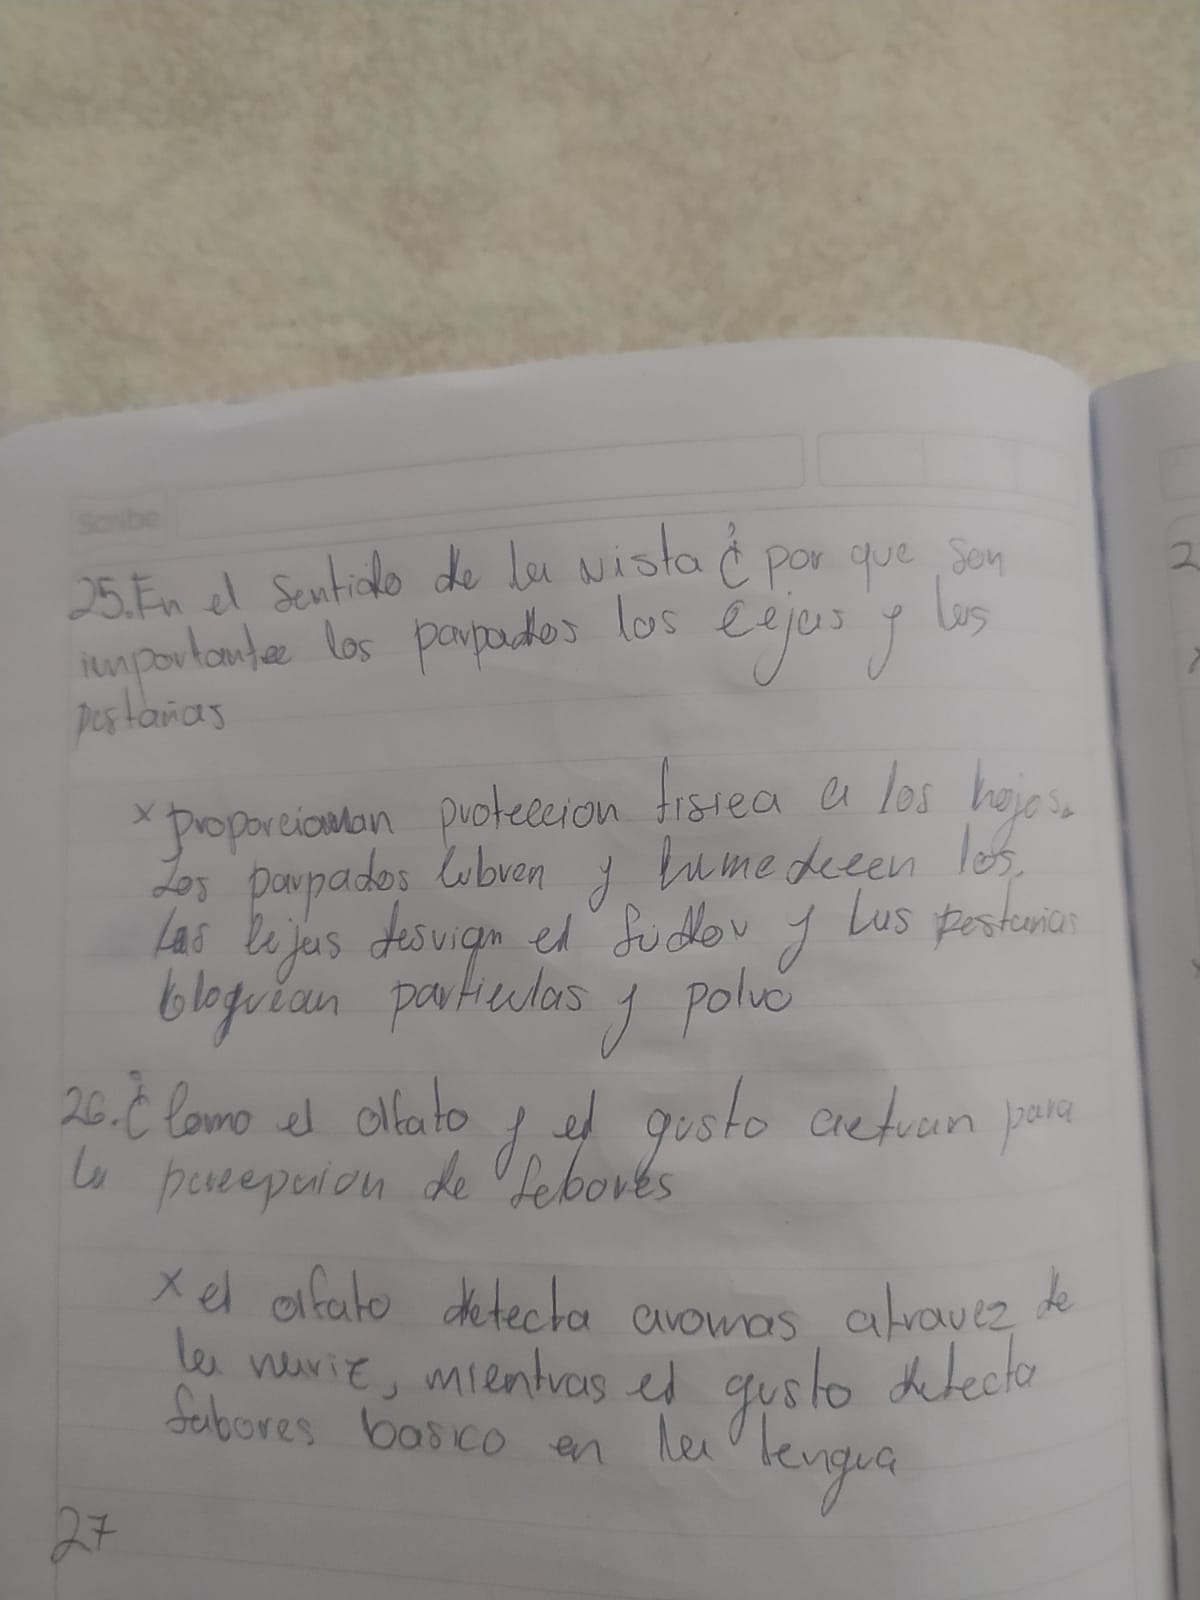 Scribe
25. En el sentido de la vista ¿ por que son
importante los parpados las cejas y las
pestañas
x proporcionan proteccion fisica a los hojos.
Los parpados cubren y humedecen los.
Las cejas desvian el sudor y las pestañas
bloquean particulas y polvo
26. ¿ Como el olfato y el gusto actuan para
la percepcion de sabores
x el olfato detecta aromas atravez de
la nariz, mientras el gusto detecta
sabores basico en la lengua
27
2